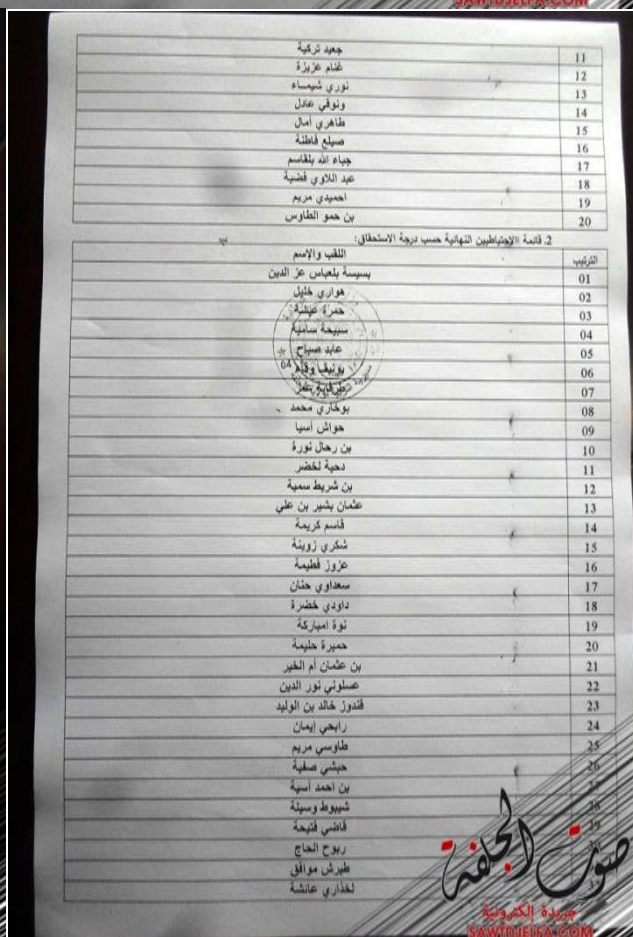 SAWTDJELFA.COM
جعيد تركية 11
غنام عزيزة 12
نوري شيماء 13
ونوفي عادل 14
طاهري أمال 15
صيلع فاطنة 16
جباء الله بلقاسم 17
عبد اللاوي فضية 18
احميدي مريم 19
بن حمو الطاوس 20
2. قائمة الإحتياطيين النهائية حسب درجة الاستحقاق:
الترتيب اللقب والإسم
01 بسيسة بلعباس عز الدين
02 هواري خليل
03 حمزة عيشة
04 سبيحة سامية
05 عابد صباح
06
07
08 بوخاري محمد
09 حواش أسيا
10 بن رحال نورة
11 دحية لخضر
12 بن شريط سمية
13 عثمان بشير بن علي
14 قاسم كريمة
15 شكري زوينة
16 عزوز فطيمة
17 سعداوي حنان
18 داودي خضرة
19 نوة امباركة
20 حميرة حليمة
21 بن عثمان أم الخير
22 عسلوني نور الدين
23 قندوز خالد بن الوليد
24 رابحي إيمان
25 طاوسي مريم
26 حبشي صفية
27 بن احمد أسية
28 شيبوط وسيلة
29 قاضي فتيحة
ربوح الحاج
طيرش موافق
لخذاري عائشة
صوت الجلفة
جريدة إلكترونية
SAWTDJELFA.COM